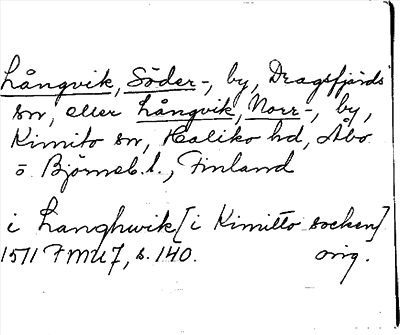 Långvik, Söder-, by, Dragsfjärds
sn, eller Långvik, Norr-, by,
Kimito sn, Haliko hd, Åbo
o. Björneb. l., Finland
i Langhwik [i Kimitto socken]
1511 FMU 7, s. 140. orig.